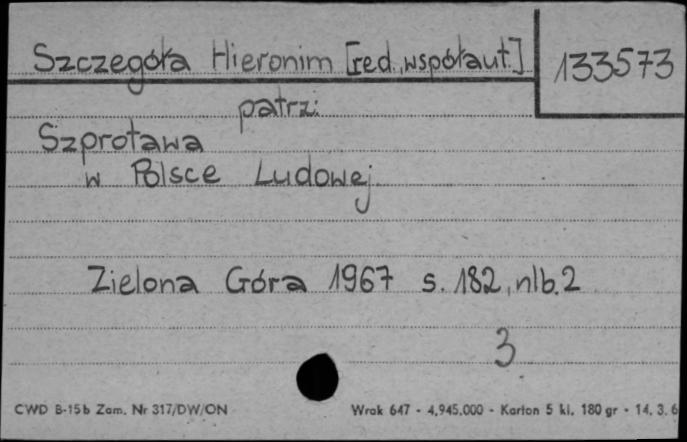 Szczegóła Hieronim [red., współaut.] 133573
patrz:
Szprotawa
w Polsce Ludowej.
Zielona Góra 1967 s. 182, nlb. 2
3
CWD B-15b Zam. Nr 317/DW/ON Wrak 647 - 4,945.000 - Karton 5 kl. 180 gr - 14. 3. 6